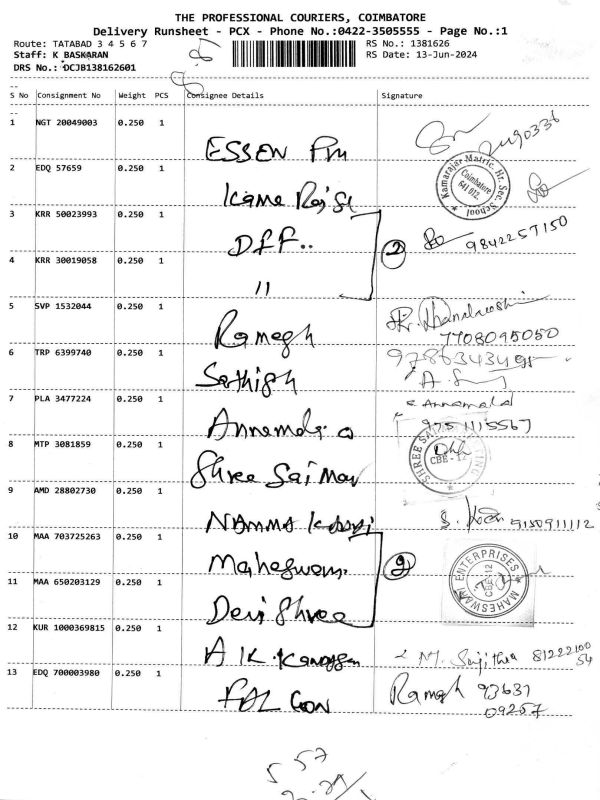 THE PROFESSIONAL COURIERS, COIMBATORE
Delivery Runsheet - PCX - Phone No.:0422-3505555 - Page No.:1
Route: TATABAD 3 4 5 6 7
RS No.: 1381626
Staff: K BASKARAN
RS Date: 13-Jun-2024
DRS No.: DCJB138162601
S No Consignment No Weight PCS Consignee Details Signature
1 NGT 20049003 0.250 1
ESSEN
2 EDQ 57659 0.250 1
Kamarajar Matric. Hr. Sec. School
Coimbatore
641 012.
3 KRR 50023993 0.250 1
DFF..
2
9842257150
4 KRR 30019058 0.250 1
"
5 SVP 1532044 0.250 1
Ramesh
7708095050
6 TRP 6399740 0.250 1
Sathish
7 PLA 3477224 0.250 1
Annamalai
9751115567
8 MTP 3081859 0.250 1
Shree Sai
CBE - 12
9 AMD 28802730 0.250 1
NAMMA
9150911112
10 MAA 703725263 0.250 1
Maheswari
2
MAHESWARI ENTERPRISES
CBE-12
11 MAA 650203129 0.250 1
Devi Shree
12 KUR 1000369815 0.250 1
A K
M. Sujitha 81222100
54
13 EDQ 700003980 0.250 1
FALCON
Ramesh 93631
09257
557